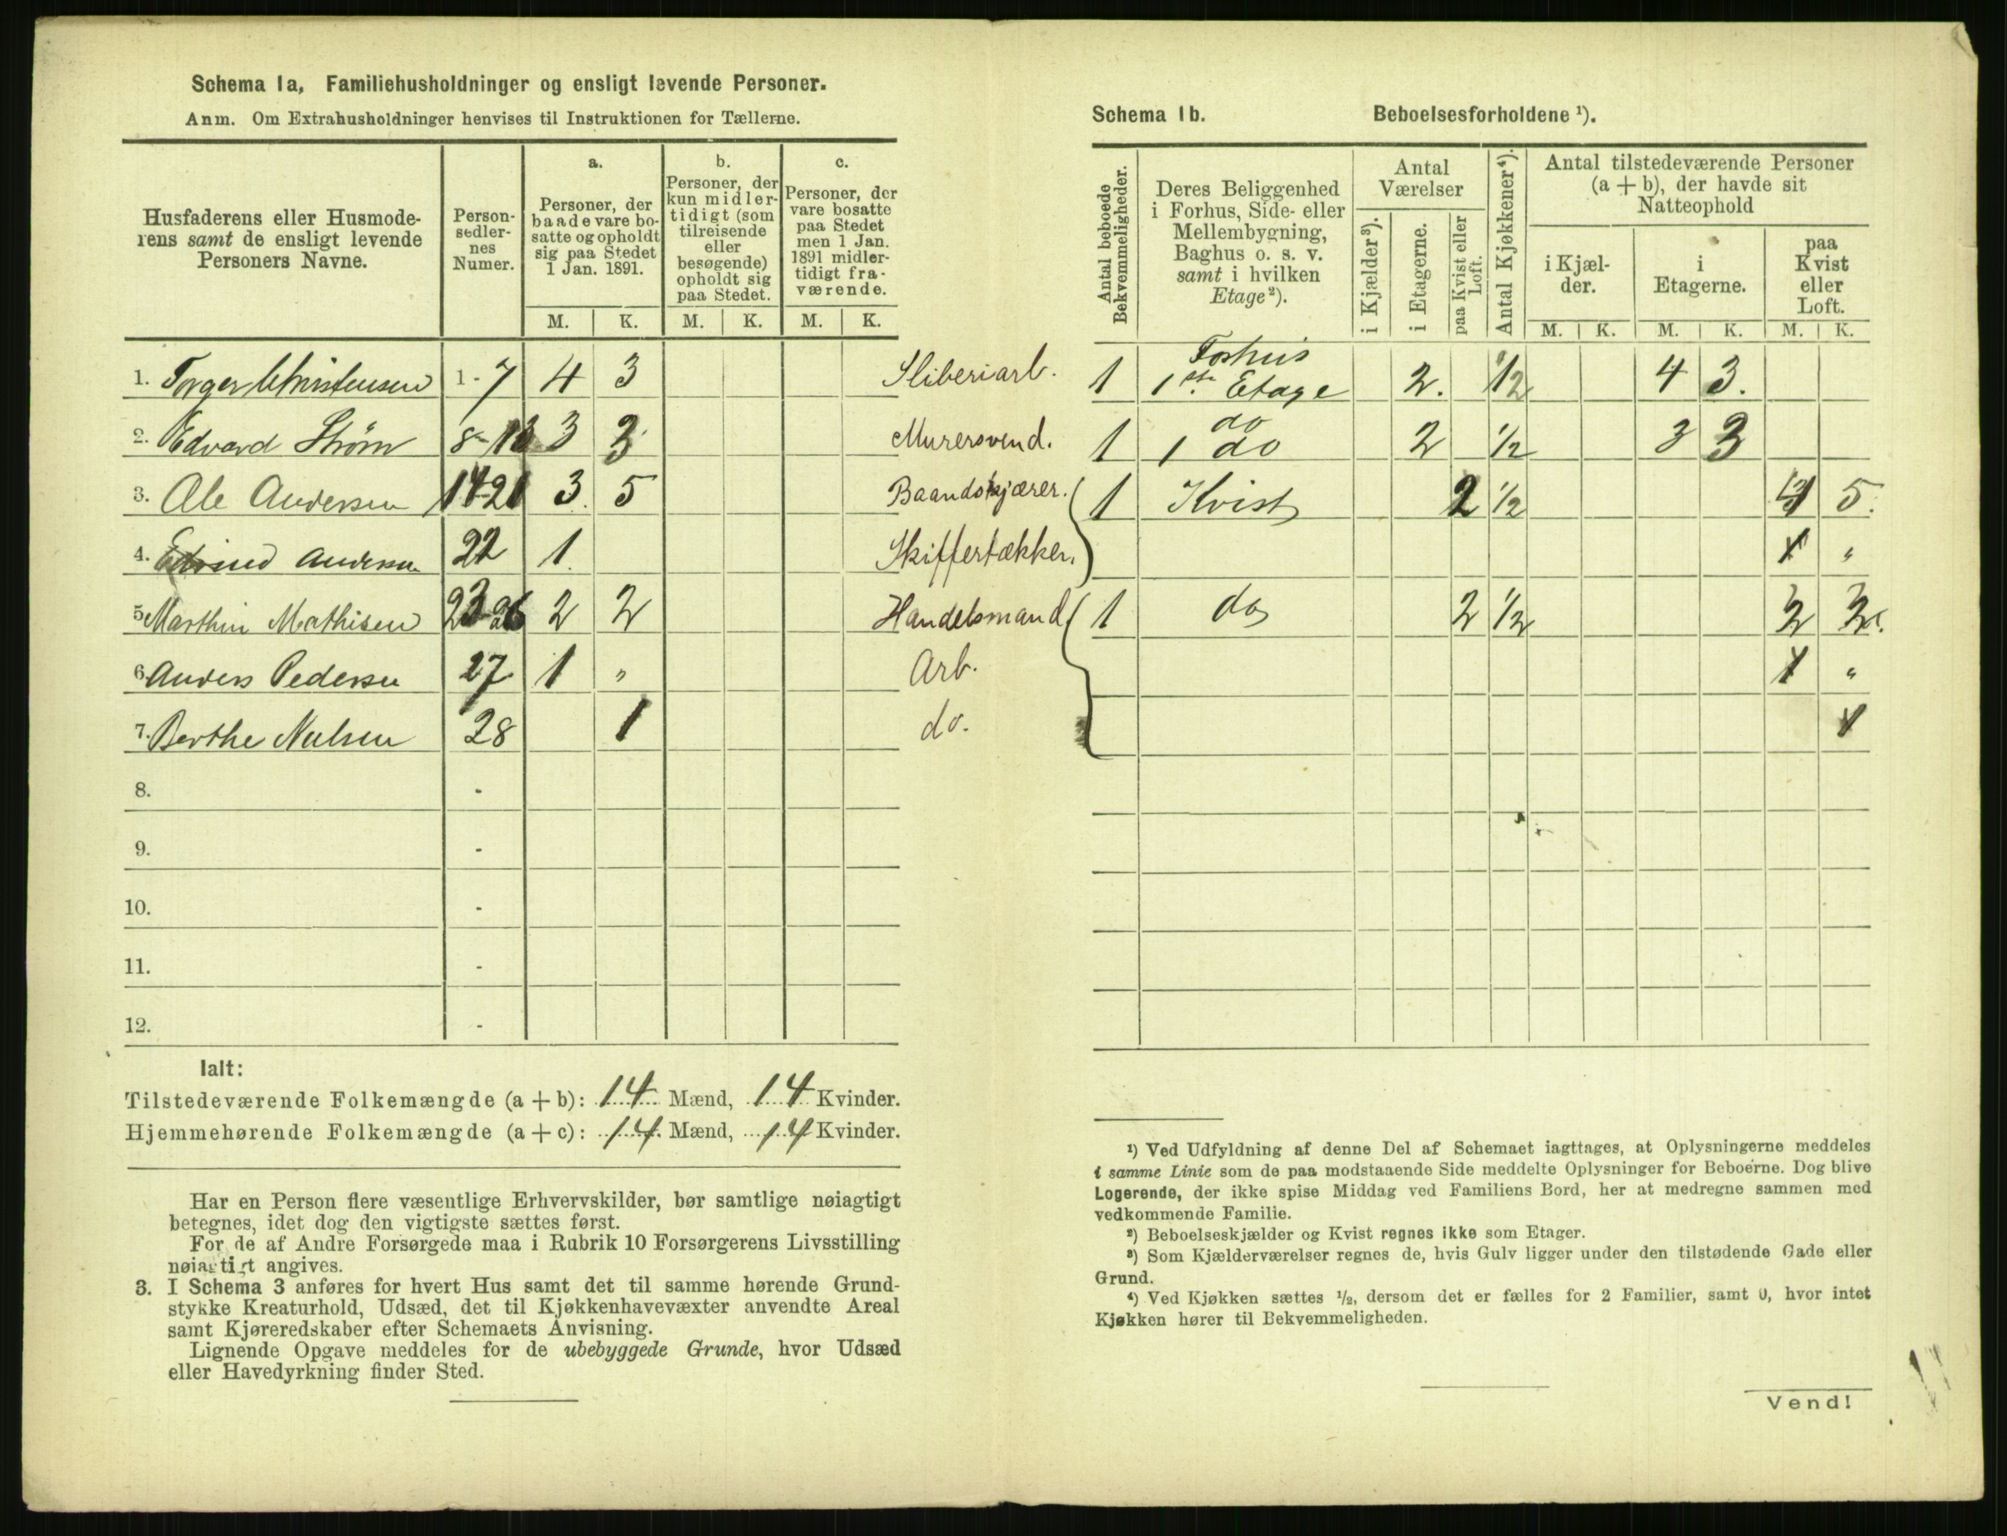 Schema 1a, Familiehusholdninger og ensligt levende Personer.
Anm. Om Extrahusholdninger henvises til Instruktionen for Tællerne.
Husfaderens eller Husmoderens samt de ensligt levende Personers Navne.
Personsedlernes Numer.
a.
Personer, der baade vare bosatte og opholdt sig paa Stedet 1 Jan. 1891.
b.
Personer, der kun midlertidigt (som tilreisende eller besøgende) opholdt sig paa Stedet.
c.
Personer, der vare bosatte paa Stedet men 1 Jan. 1891 midlertidigt fraværende.
M. K. M. K. M. K.
1. Torger Christensen 1-7 4 3 Sliberiarb.
2. Edvard Strøm 8-13 3 3 Murersvend.
3. Ole Andersen 14-21 3 5 Baandskjærer.
4. Andersen 22 1 Skiffertækker.
5. Marthin Mathisen 23-26 2 2 Handelsmand
6. Anders Pedersen 27 1 " Arb.
7. Berthe Nielsen 28 1 do.
8. -
9. -
10. -
11. -
12. -
Ialt:
Tilstedeværende Folkemængde (a + b): 14 Mænd, 14 Kvinder.
Hjemmehørende Folkemængde (a + c): 14 Mænd, 14 Kvinder.
Har en Person flere væsentlige Erhvervskilder, bør samtlige nøiagtigt
betegnes, idet dog den vigtigste sættes først.
For de af Andre Forsørgede maa i Rubrik 10 Forsørgerens Livsstilling
nøiagtigt angives.
3. I Schema 3 anføres for hvert Hus samt det til samme hørende Grund-
stykke Kreaturhold, Udsæd, det til Kjøkkenhavevæxter anvendte Areal
samt Kjøreredskaber efter Schemaets Anvisning.
Lignende Opgave meddeles for de ubebyggede Grunde, hvor Udsæd
eller Havedyrkning finder Sted.
Schema 1b. Beboelsesforholdene ¹).
Antal beboede Bekvemmeligheder.
Deres Beliggenhed i Forhus, Side- eller Mellembygning, Baghus o. s. v. samt i hvilken Etage ²).
Antal Værelser
i Kjælder ³).
i Etagerne.
paa Kvist eller Loft.
Antal Kjøkkener ⁴).
Antal tilstedeværende Personer (a + b), der havde sit Natteophold
i Kjælder.
i Etagerne.
paa Kvist eller Loft.
M. K. M. K. M. K.
1 Forhus 1ste Etage 2. 1/2 4 3.
1 do 1 do 2 1/2 3 3
1 Kvist 2 1/2 5.
1 "
1 do 2 1/2 2 2.
1 "
1
¹) Ved Udfyldning af denne Del af Schemaet iagttages, at Oplysningerne meddeles
i samme Linie som de paa modstaaende Side meddelte Oplysninger for Beboerne. Dog blive
Logerende, der ikke spise Middag ved Familiens Bord, her at medregne sammen med
vedkommende Familie.
²) Beboelseskjælder og Kvist regnes ikke som Etager.
³) Som Kjælderværelser regnes de, hvis Gulv ligger under den tilstødende Gade eller
Grund.
⁴) Ved Kjøkken sættes ¹/₂, dersom det er fælles for 2 Familier, samt 0, hvor intet
Kjøkken hører til Bekvemmeligheden.
Vend!